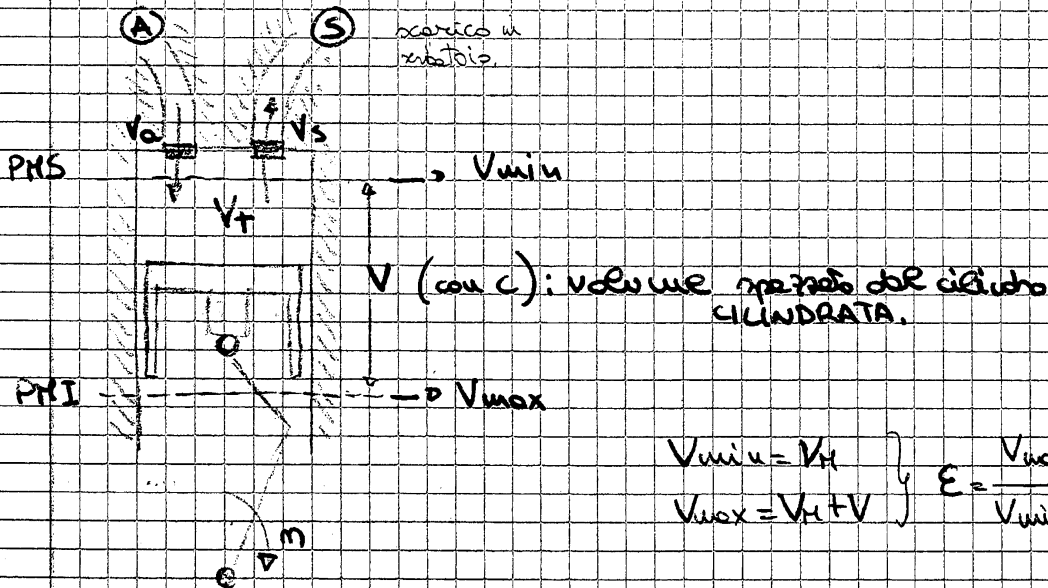 A S scarico in
serbatoio.
Va Vs
PMS Vmin
V+
V (con C): volume spazzato dal cilindro
CILINDRATA.
PMI Vmax
Vmin = VM
Vmax = VM + V } ε = Vma
Vmi
n